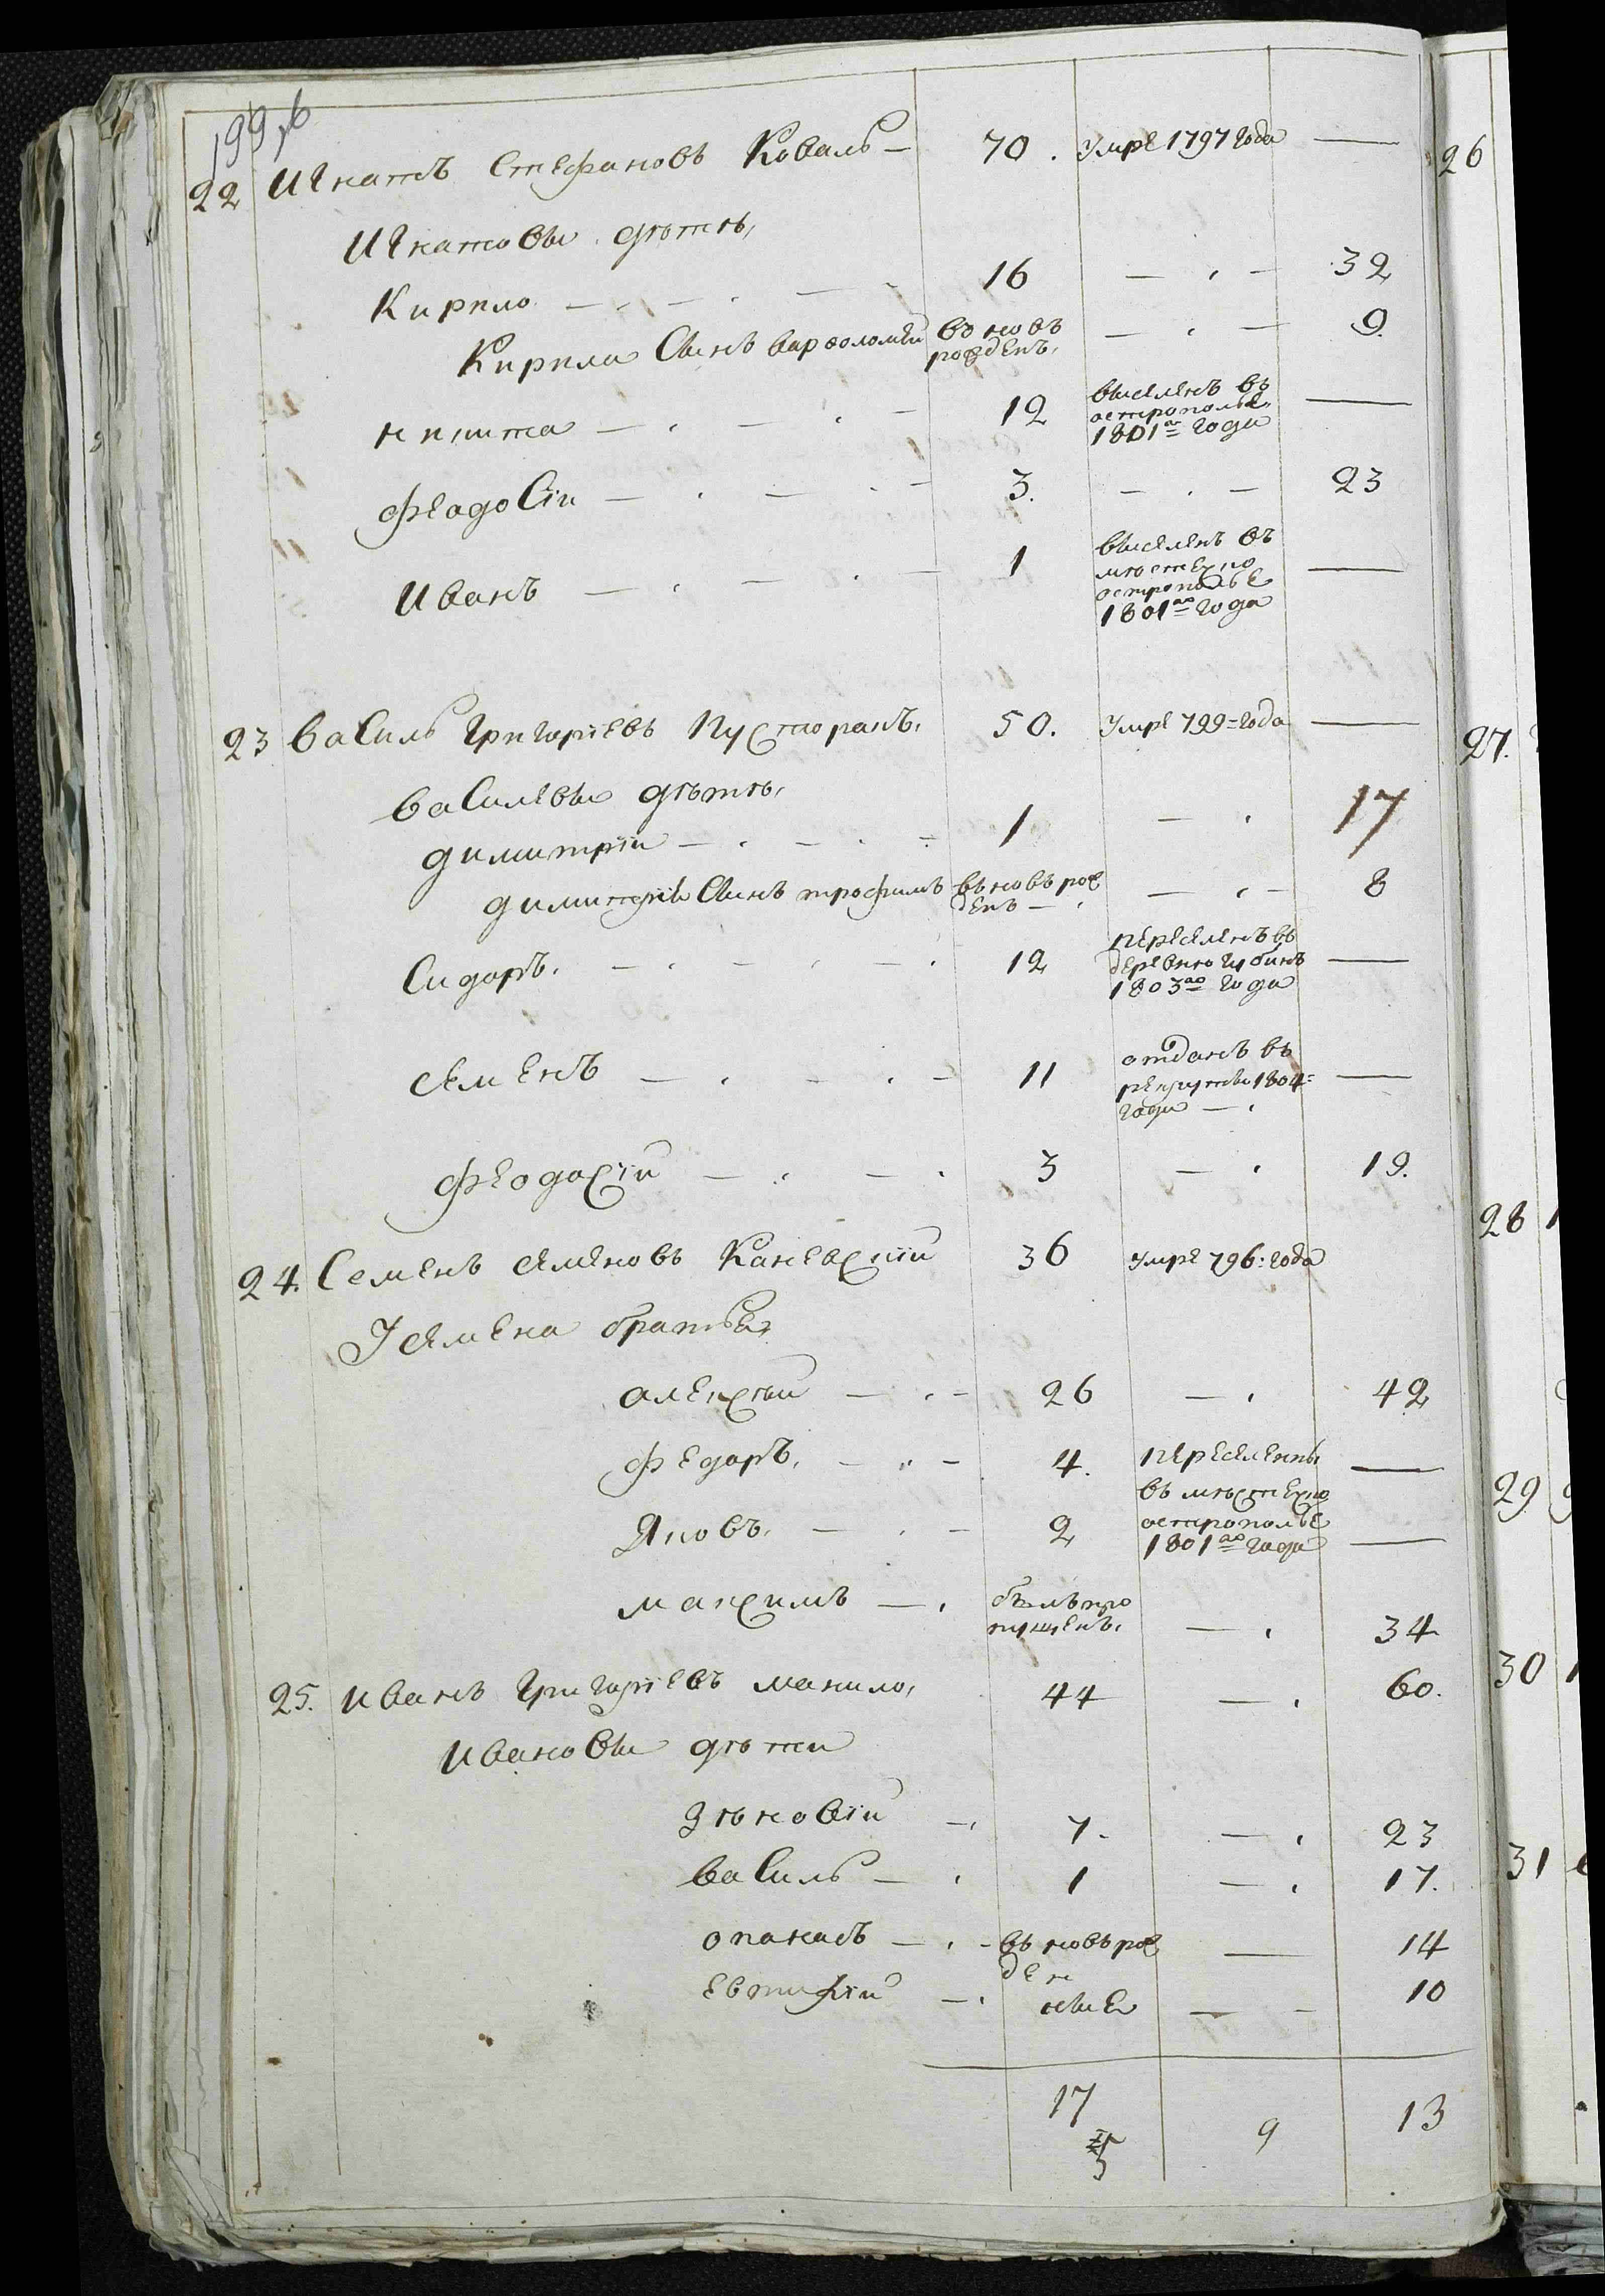 22 Игнатъ Стефановъ Коваль — 70. умре 1797 года —
Игнатовы дѣтѣ,
Кирило — . — . — 16 — . — 32
Кирила Сынъ варфоломѣй въ новъ рожденъ, — . — 9.
никита — . — . — 12 выселенъ въ острополье 1801го года —
феодосій — . — . — 3. — . — 23
Иванъ — . — . — 1 выселенъ въ мѣстечко острополье 1801го года —
23 василь Григоріевъ Пусторанъ, 50. умре 799= года —
васильевы дѣтѣ,
димитрій — . — . 1 — . 17
димитрія Сынъ трофимъ въ новъ рожденъ — . — . — 8
Сидоръ, — . — . — . 12 переселенъ въ деревню Губинъ 1803го года —
семенъ — . — . — 11 отданъ въ рекруты 1804= года — . —
феодосій — . — . 3 — . 19.
24. Семенъ семеновъ Каневскій 36 умре 796: года
У семена братья
алексѣй — . — 26 — . 42
федоръ, — . — 4. переселенны —
въ мѣстечко
Яковъ, — . — 2 острополье 1801го года —
максимъ — . былъ пропущенъ, — . 34
25. иванъ Григоріевъ манило, 44 — . 60.
ивановы дѣти
Зѣновій — . 7. — . 23
василь — . 1 — . 17.
опанасъ — . — въ новъ рожден — 14
евтифій — . ные — — 10
17 9 13
5
26
27.
28
29
30
31